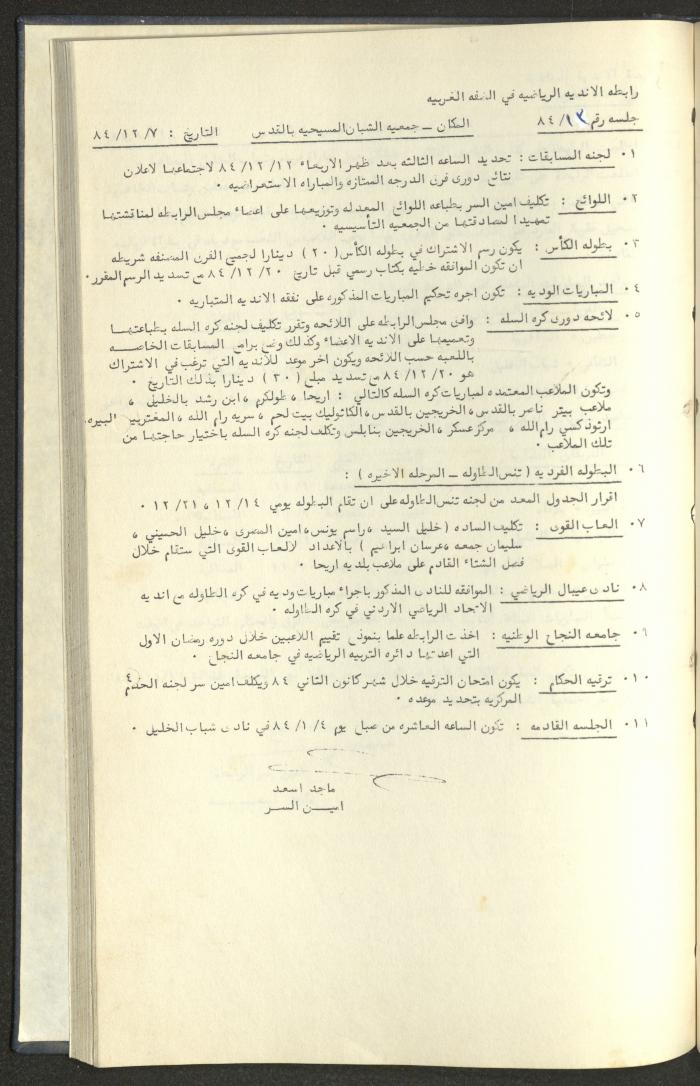 رابطه الانديه الرياضيه في الضفه الغربيه
جلسه رقم ٨٤/١٣ المكان ــ جمعيه الشبان المسيحيه بالقدس التاريخ : ٨٤/١٢/٧
٠١ لجنه المسابقات : تحديد الساعه الثالثه بعد ظهر الاربعاء ٨٤/١٢/١٢ لاجتماعها لاعلان
نتائج دورى فرق الدرجه الممتازه والمباراه الاستعراضيه ٠
٠٢ اللوائح : تكليف امين السر بطباعه اللوائح المعدله وتوزيعها على اعضاء مجلس الرابطه لمناقشتها
تمهيدا لمصادقتها من الجمعيه التأسيسيه ٠
٠٣ بطوله الكأس : يكون رسم الاشتراك في بطوله الكأس (٢٠) دينارا لجميع الفرق المصنفه شريطه
ان تكون الموافقه خطيه بكتاب رسمي قبل تاريخ ٨٤/١٢/٢٠ مع تسديد الرسم المقرر٠
٠٤ المباريات الوديه : تكون اجره تحكيم المباريات المذكوره على نفقه الانديه المتباريه ٠
٠٥ لائحه دورى كره السله : وافق مجلس الرابطه على اللائحه وتقرر تكليف لجنه كره السله بطباعتها
وتعميمها على الانديه الاعضاء وكذلك وضع برامج المسابقات الخاصــه
باللعبه حسب اللائحه ويكون اخر موعد للانديه التي ترغب في الاشتراك
هو ٨٤/١٢/٢٠ مع تسديد مبلغ (٣٠) دينارا بذلك التاريخ ٠
وتكون الملاعب المعتمده لمباريات كره السله كالتالي : اريحا ، طولكرم ، ابن رشد بالخليل ،
ملاعب بيتر ناصر بالقدس ، الخريجين بالقدس ، الكاثوليك بيت لحم ، سريه رام الله ، المغتربين البيره،
ارثوذكسي رام الله ، مركز عسكر ، الخريجين بنابلس وتكلف لجنه كره السله باختيار حاجتها من
تلك الملاعب ٠
٠٦ البطوله الفرديه ( تنس الطاوله ــ المرحله الاخيره ) :
اقرار الجدول المعد من لجنه تنس الطاوله على ان تقام البطوله يومي ١٢/١٤ ، ١٢/٢١ ٠
٠٧ العاب القوى : تكليف الساده ( خليل السيد ، راسم يونس ، امين المصرى ، خليل الحسيني ،
سليمان جمعه ، عرسان ابراهيم ) بالاعداد لالعاب القوى التي ستقام خلال
فصل الشتاء القادم على ملاعب بلديه اريحا ٠
٠٨ نادى عيبال الرياضي : الموافقه للنادى المذكور باجراء مباريات وديه في كره الطاوله مع انديه
الاتحاد الرياضي الاردني في كره الطاوله ٠
٠٩ جامعه النجاح الوطنيه : اخذت الرابطه علما بنموذج تقييم اللاعبين خلال دوره رمضان الاول
التي اعدتها دائره التربيه الرياضيه في جامعه النجاح ٠
٠١٠ ترقيه الحكام : يكون امتحان الترقيه خلال شهر كانون الثاني ٨٤ ويكلف امين سر لجنه الحكم
المركزيه بتحديد موعده ٠
٠١١ الجلسه القادمه : تكون الساعه العاشره من صباح يوم ٨٤/١/٤ في نادى شباب الخليل ٠
ماجد اسعد
اميــن الســر